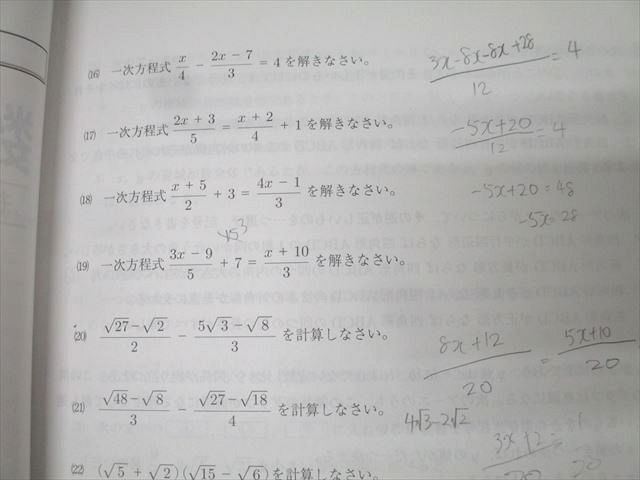 (16) 一次方程式 x/4 − (2x − 7)/3 = 4 を解きなさい。
3x-8x-8x+28/12 = 4
(17) 一次方程式 (2x + 3)/5 = (x + 2)/4 + 1 を解きなさい。
-5x+20/12 = 4
(18) 一次方程式 (x + 5)/2 + 3 = (4x − 1)/3 を解きなさい。
-5x+20=48
-5x=28
(19) 一次方程式 (3x − 9)/5 + 7 = (x + 10)/3 を解きなさい。
(20) (√27 − √2)/2 − (5√3 − √8)/3 を計算しなさい。
8x+12/20 = 5x+10/20
(21) (√48 − √8)/3 − (√27 − √18)/4 を計算しなさい。
4√3-2√2
3x+12=
(22) (√5 + √2)(√15 − √6)を計算しなさい。